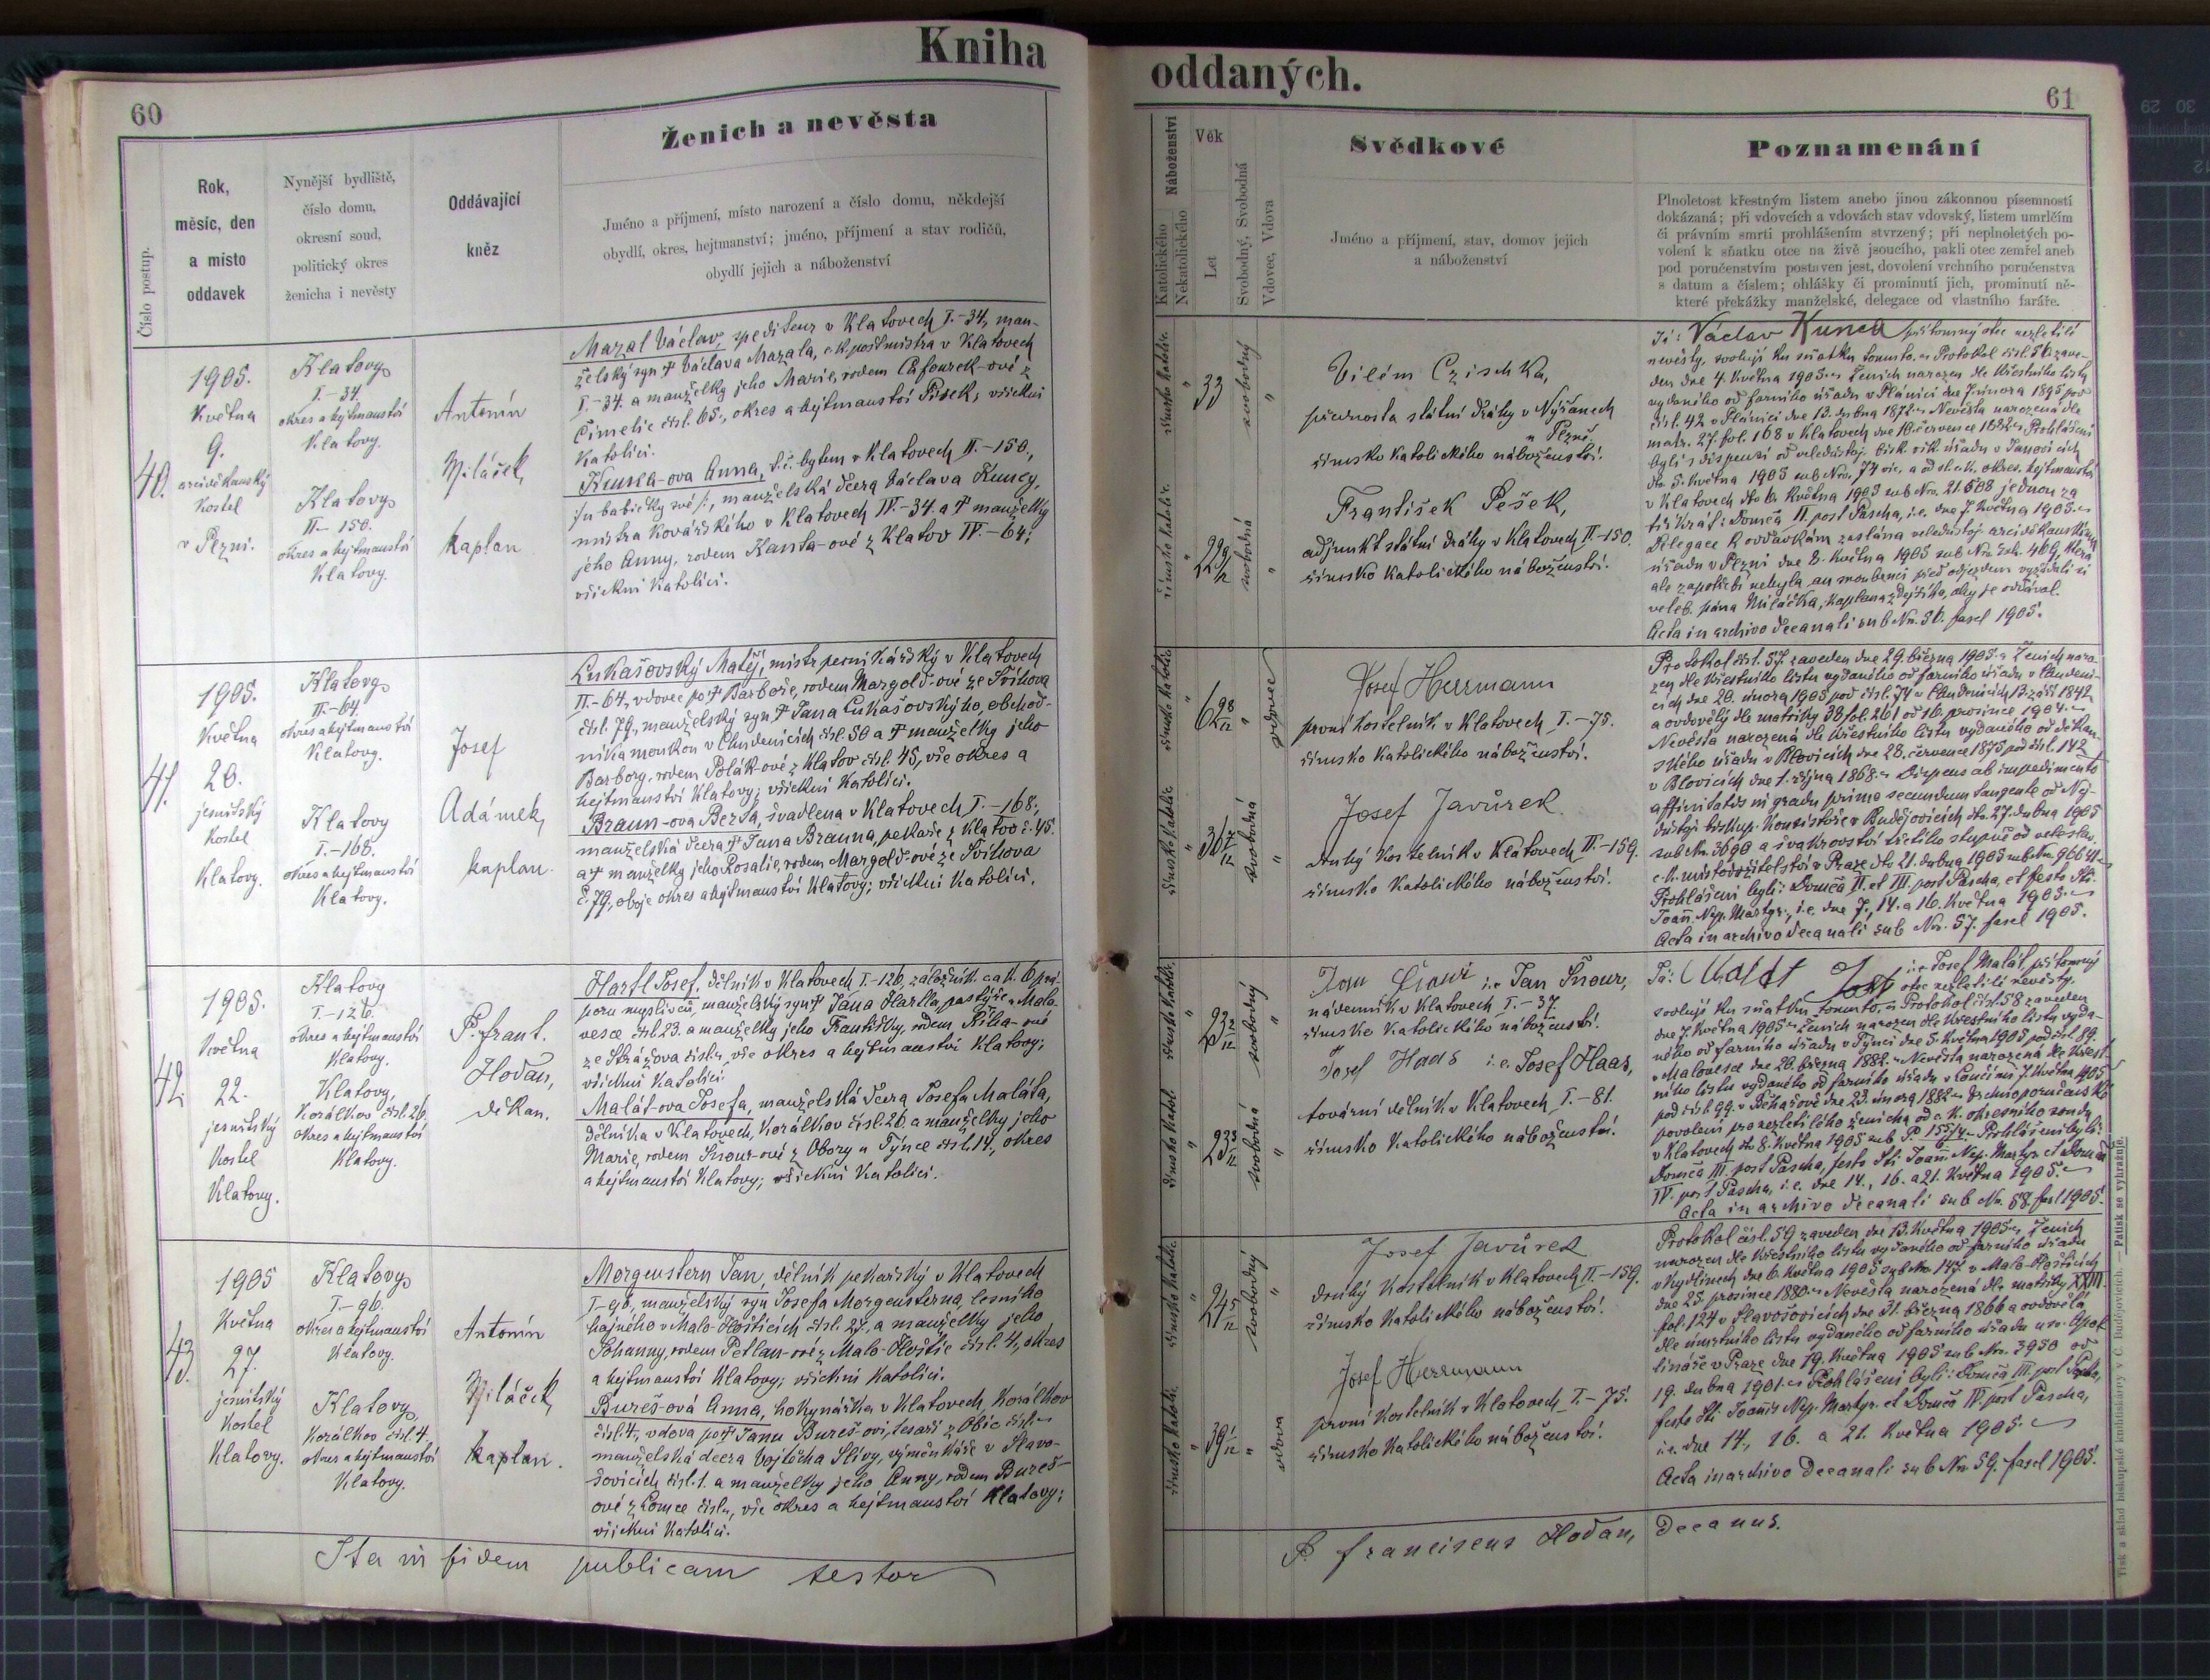 Kniha
60
Číslo postup.
Rok,
měsíc, den
a místo
oddavek
Nynější bydliště,
číslo domu,
okresní soud,
politický okres
ženicha i nevěsty
Oddávající
kněz
Ženich a nevěsta
Jméno a příjmení, místo narození a číslo domu, někdejší
obydlí, okres, hejtmanství; jméno, příjmení a stav rodičů,
obydlí jejich a náboženství
40.
1905.
Května
9.
arciděkanský
kostel
v Plzni.
Klatovy
I.-34.
okres a hejtmanství
Klatovy.
Klatovy
II-150.
okres a hejtmanství
Klatovy.
Antonín
Miláček,
kaplan
Mazal Václav, spediteur v Klatovech I.-34, man-
želský syn † Václava Mazala, c.k. poštmistra v Klatovech
I.-34. a manželky jeho Marie, rodem Cífourek-ové z
Čimelic čísl. 65., okres a hejtmanství Písek, všickni
katolíci.
Kunca-ova Anna, t.č. bytem v Klatovech II.-150.,
/:u babičky své:/, manželská dcera Václava Kuncy,
mistra kovářského v Klatovech IV.-34. a † manželky
jeho Anny, rodem Kanta-ové z Klatov IV.-64;
všickni katolíci.
41.
1905.
Května
20.
jesuitský
kostel
Klatovy.
Klatovy
II.-64.
okres a hejtmanství
Klatovy.
Klatovy
I.-168.
okres a hejtmanství
Klatovy.
Josef
Adámek,
kaplan.
Lukašovský Matěj, mistr perníkářský v Klatovech
II.-64., vdovec po † Barboře, rodem Margold-ové ze Švihova
čísl. 79., manželský syn † Jana Lukašovského, obchod-
níka moukou v Chudenicích čísl. 50 a † manželky jeho
Barbory, rodem Polák-ové z Klatov čísl. 45, vše okres a
hejtmanství Klatovy; všickni katolíci.
Braun-ova Berta, švadlena v Klatovech I.-168.,
manželská dcera † Jana Brauna, pekaře z Klatov č. 45.
a † manželky jeho Rosalie, rodem Margold-ové ze Švihova
č. 79., oboje okres a hejtmanství Klatovy; všickni katolíci.
42.
1905.
Května
22.
jesuitský
kostel
Klatovy.
Klatovy
I.-126.
okres a hejtmanství
Klatovy.
Klatovy,
Korálkov čísl. 26.
okres a hejtmanství
Klatovy.
P. Frant.
Hoďan,
děkan.
Hartl Josef, dělník v Klatovech I.-126, záložník
manželský syn † Jana Hartla, pastýře v Malo-
vesce čísl. 23. a manželky jeho Františky, rodem Říha-ové
ze Strážova čísl. „, vše okres a hejtmanství Klatovy;
všickni katolíci.
Malát-ova Josefa, manželská dcera Josefa Maláta,
dělníka v Klatovech, Korálkov čísl. 26. a manželky jeho
Marie, rodem Šnour-ové z Obory u Týnce čísl. 14., okres
a hejtmanství Klatovy; všickni katolíci.
43.
1905
Května
27.
jesuitský
kostel
Klatovy.
Klatovy
I.-96.
okres a hejtmanství
Klatovy.
Klatovy,
Korálkov čísl. 4.
okres a hejtmanství
Klatovy.
Antonín
Miláček,
kaplan.
Morgenstern Jan, dělník pekařský v Klatovech
I-96, manželský syn Josefa Morgensterna, lesního
hajného v Malo-Hošticích čísl. 27., a manželky jeho
Johanny, rodem Petlan-ové z Malo-Hoštic čísl. 4., okres
a hejtmanství Klatovy; všickni katolíci.
Bureš-ová Anna, hokynářka v Klatovech, Korálkov
čísl. 4., vdova po † Janu Bureš-ovi, tesaři z Obic čísl. „
manželská dcera Vojtěcha Slívy, výměnkáře v Slavo-
šovicích čísl. 1. a manželky jeho Anny, rodem Bureš-
ové z Lomce čísl. „, vše okres a hejtmanství Klatovy;
všickni katolíci.
Ita in fidem publicam testor
oddaných.
61
Náboženství
Katolického
Nekatolického
Věk
Let
Svobodný, Svobodná
Vdovec, Vdova
Svědkové
Jméno a příjmení, stav, domov jejich
a náboženství
Poznamenání
Plnoletost křestným listem anebo jinou zákonnou písemností
dokázaná; při vdovcích a vdovách stav vdovský, listem umrlčím
či právním smrti prohlášením stvrzený; při neplnoletých po-
volení k sňatku otce na živě jsoucího, pakli otec zemřel aneb
pod poručenstvím postaven jest, dovolení vrchního poručenstva
s datum a číslem; ohlášky či prominutí jich, prominutí ně-
které překážky manželské, delegace od vlastního faráře.
římsko katolic.
33
svobodný
Vilém Czischka,
přednosta státní dráhy v Nýřanech
u Plzně.
římsko katolického náboženství.
římsko katolic.
22 9/12
svobodná
František Pešek,
adjunkt státní dráhy v Klatovech II.-150.
římsko katolického náboženství.
Já: Václav Kunca přítomný otec nezletilé
nevěsty, svoluji ku sňatku tomuto. Protokol čísl. 56 zave-
den dne 4. května 1905. Ženich narozen dle křestního listu
vydaného od farního úřadu v Plánici dne 7. února 1895 pod
čísl. 42 v Plánici dne 13. dubna 1872. Nevěsta narozená dle
matr. 27. fol. 168 v Klatovech dne 18. července 1882. Prohlášeni
byli s dispensí od veledůstoj. bisk. vik. úřadu v Janovicích
dto. 5. května 1905 sub Nro. 74 vic., a od sl. c.k. okres. hejtmanství
v Klatovech dto 6. května 1905 sub Nro. 21.508 jednou za
třikrát: Domca II. post Pascha, i.e. dne 7. května 1905.
Delegace k oddavkám zaslána veledůstoj. arciděkanskému
úřadu v Plzni dne 8. května 1905 sub Nro exh. 469, která
ale zapotřebí nebyla, an snoubenci před odjezdem vyžádali si
veleb. pána Miláčka, kaplana zdejšího, aby je oddával.
Acta in archivo decanali sub Nro. 56. fasc 1905.
římsko katolic
62 8/12
vdovec
Josef Herrmann
první kostelník v Klatovech I.-75.
římsko katolického náboženství.
římsko katolic
36
svobodná
Josef Javůrek
druhý kostelník v Klatovech II.-159.
římsko katolického náboženství.
Protokol čísl. 57. zaveden dne 29. března 1905. Ženich naro-
zen dle křestního listu vydaného od farního úřadu v Chudeni-
cích dne 20. února 1905 pod čísl. 74 v Chudenicích 13. září 1842
a ovdovělý dle matriky 38 fol. 261 od 16. prosince 1904.
Nevěsta narozená dle křestního listu vydaného od děkan-
ského úřadu v Blovicích dne 28. července 1875 pod čísl. 142
v Blovicích dne 1. října 1868. Dispens ab impedimento
affinitatis in gradu primo secundum tangente od Nej-
důstoj. biskup. konsistoře v Budějovicích dto. 27. dubna 1905
sub Nro. 3690 a švakrovství třetího stupně od veleslav.
c.k. místodržitelství v Praze dto 21. dubna 1905 sub Nro. 96641.
Prohlášeni byli: Domca II. et III. post Pascha, et festo Sti.
Joann. Nep. Martyr., i.e. dne 7., 14. a 16. května 1905.
Acta in archivo decanali sub Nro. 57. fasc 1905.
římsko katolic.
23 2/12
svobodný
Jan Šnour i.e Jan Šnour,
nádenník v Klatovech I.-37
římsko katolického náboženství.
římsko katol
23 3/12
svobodná
Josef Haas i.e. Josef Haas,
tovární dělník v Klatovech I.-81.
římsko katolického náboženství.
Já: Malát Josef i.e Josef Malát přítomný
otec nezletilé nevěsty,
svoluji ku sňatku tomuto. Protokol čísl. 58 zaveden
dne 7. května 1905. Ženich narozen dle křestního listu vyda-
ného od farního úřadu v Týnci dne 5. května 1905 pod čísl. 89.
v Malovesce dne 26. března 1882. Nevěsta narozená dle křest-
ního listu vydaného od farního úřadu v Loučimi 7. května 1905
pod čísl. 99. v Běhařově dne 23. února 1882. Vrchnoporučenské
povolení pro nezletilého ženicha od c.k. okresního soudu
v Klatovech dto 8. května 1905 sub P. 155/4. Prohlášeni byli:
Domca III. post Pascha, festo Sti Joann. Nep. Martyr. et Domca
IV. post Pascha, i.e. dne 14., 16. a 21. května 1905.
Acta in archivo decanali sub Nro. 58. fasc 1905.
římsko katolic
24 5/12
svobodný
Josef Javůrek
druhý kostelník v Klatovech II.-159.
římsko katolického náboženství.
římsko katolic.
39 1/12
vdova
Josef Herrmann
první kostelník v Klatovech I.-75.
římsko katolického náboženství.
Protokol čísl. 59 zaveden dne 13. května 1905. Ženich
narozen dle křestního listu vydaného od farního úřadu
v Kydlinech dne 6. května 1905 sub Nro 147 v Malo-Hošticích
dne 25. prosince 1880. Nevěsta narozená dle matriky XXIII.
fol. 124 v Slavošovicích dne 31. března 1866 a ovdovělá
dle úmrtního listu vydaného od farního úřadu u sv. Apol-
lináře v Praze dne 19. května 1905 sub Nro. 3950 od
19. dubna 1901. Prohlášeni byli: Domca III. post Pascha,
festo Sti Joannis Nep. Martyr. et Domca IV post Pascha,
i.e. dne 14., 16. a 21. května 1905.
Acta in archivo decanali sub Nro 59. fasc 1905.
P. Franciscus Hoďan, decanus.
Tisk a sklad biskupské knihtiskárny v Č. Budějovicích. — Patisk se vyhražuje.